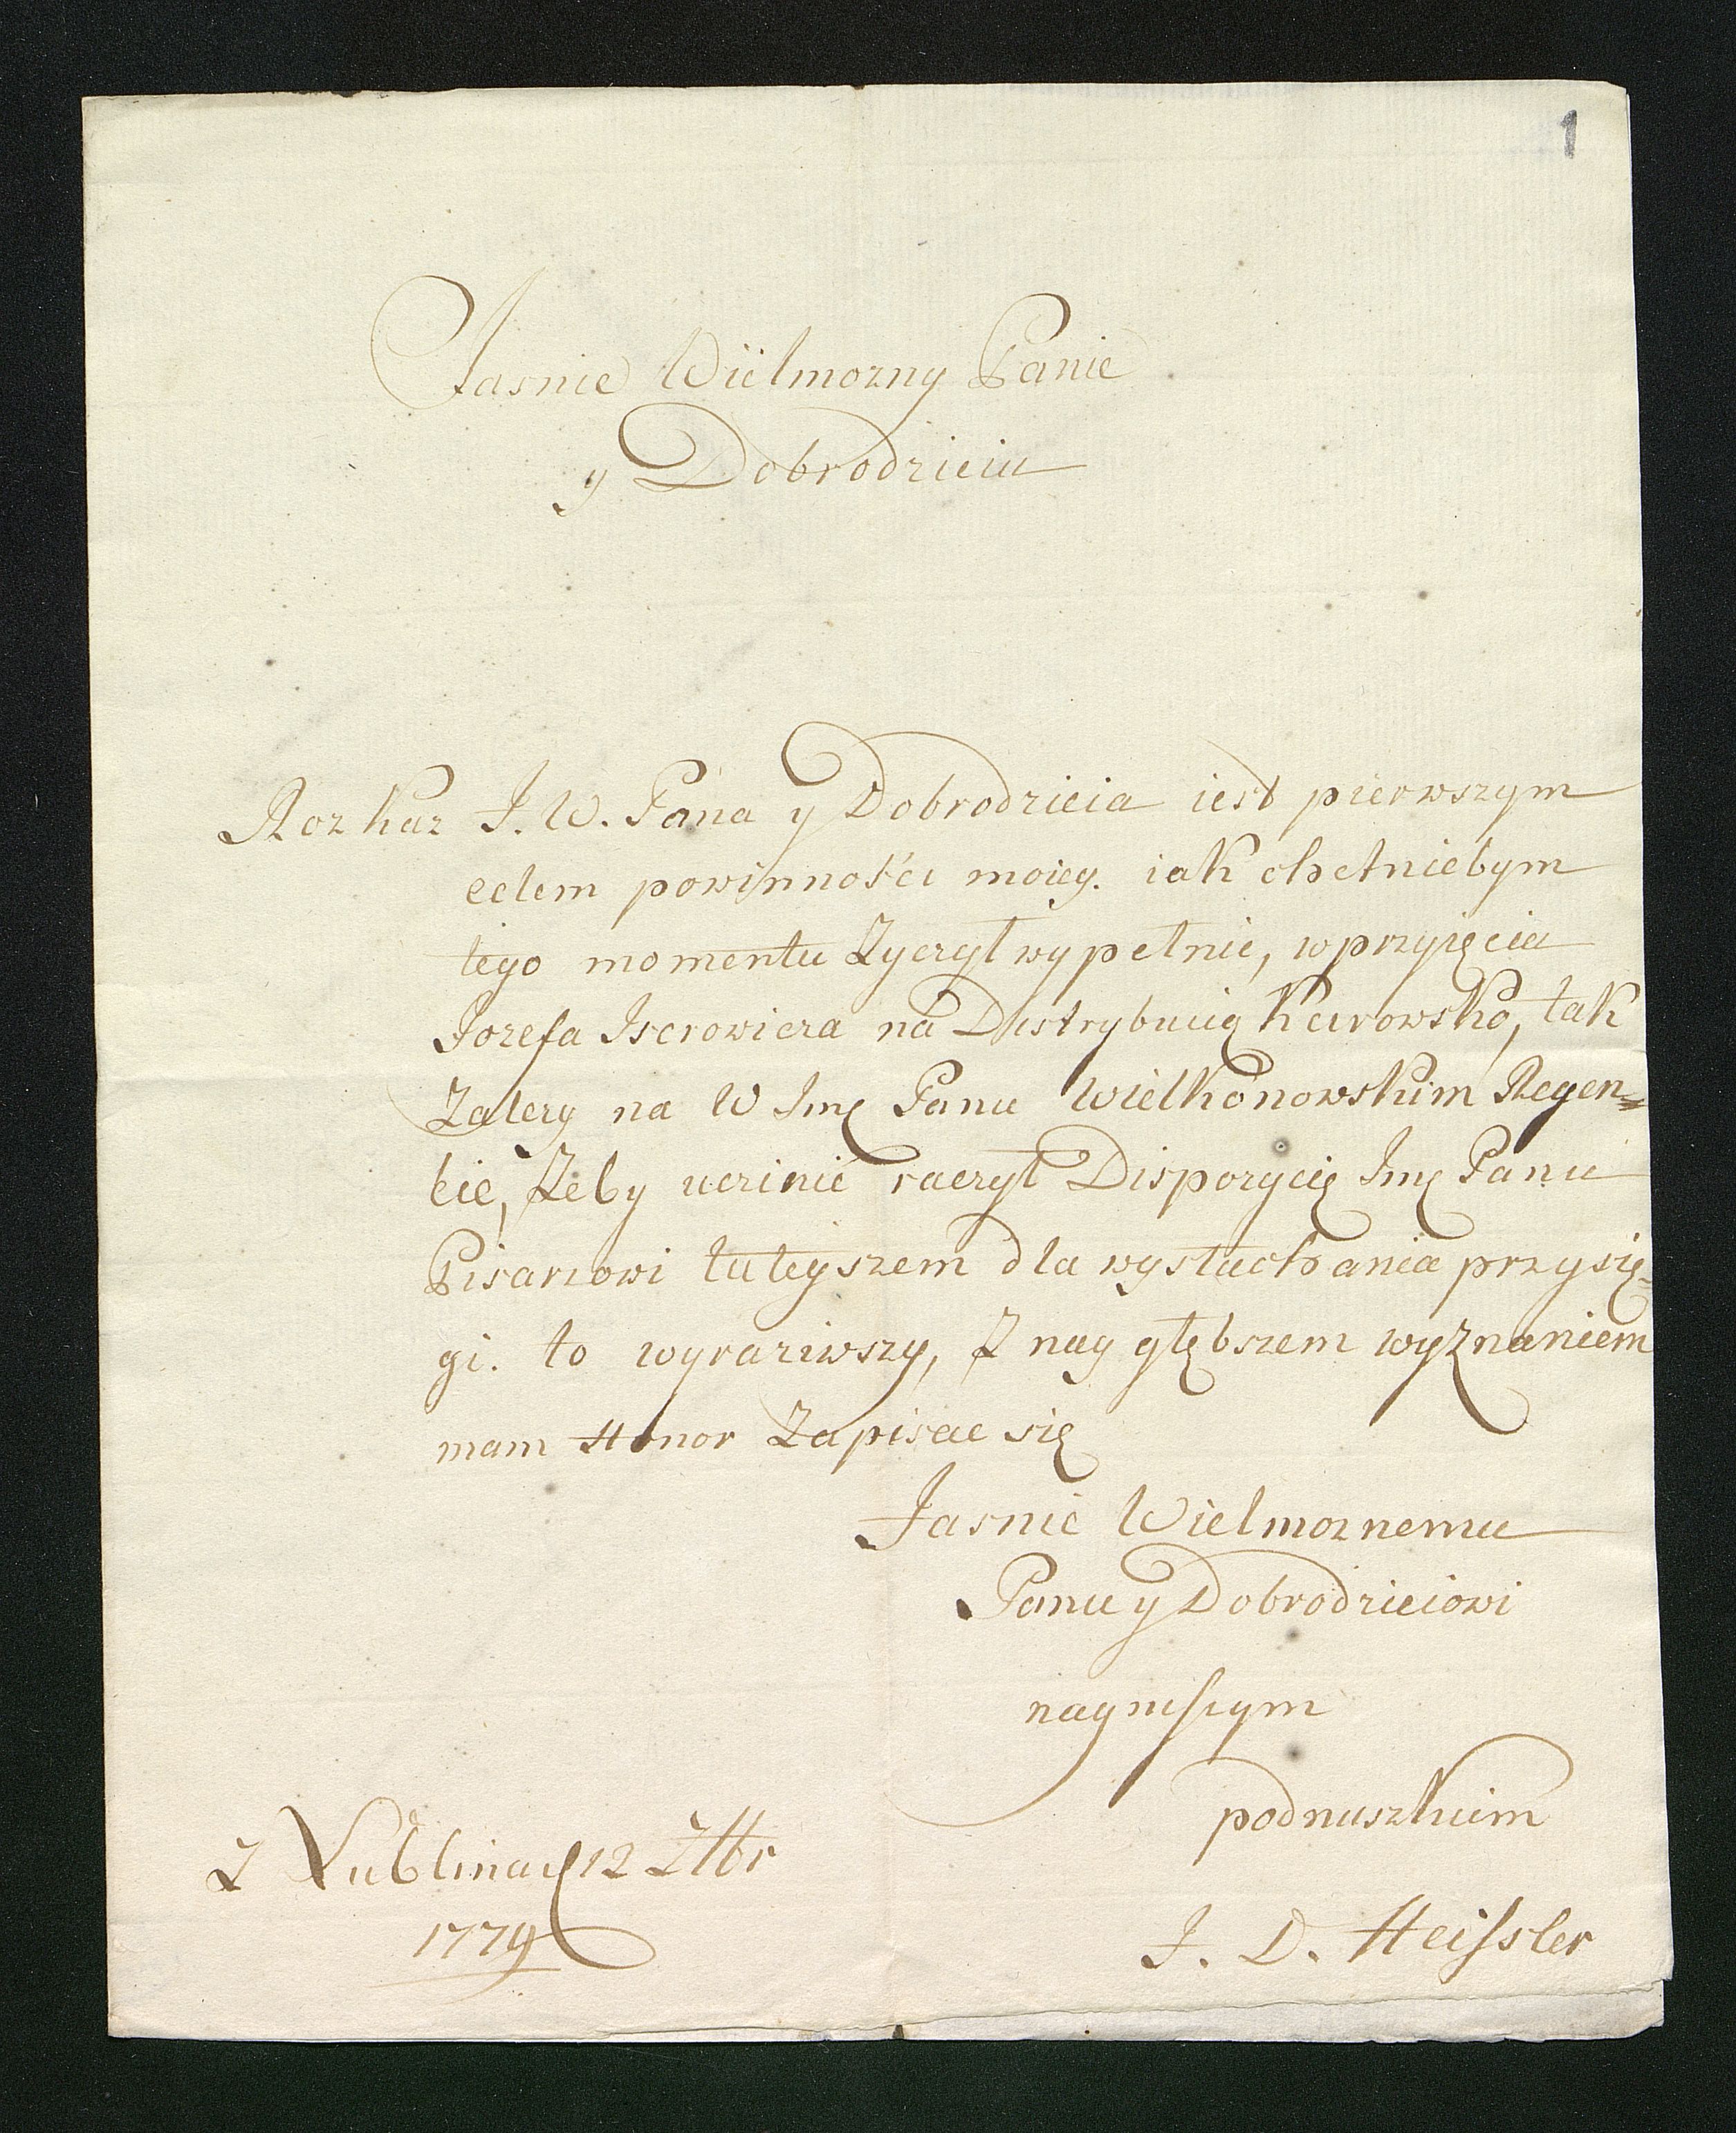 1
Jasnie Wielmozny Panie
y Dobrodzieiu
Rozkaz J. W. Pana y Dobrodzieia iest pierwszym
celem powinności moiey. iak chetniebym
tego momentu Zyczył wypełnic, w przyięcia
Jozefa Iserowicza na Distrybucią Kurowsko, tak
Zalezy na W Jmę Panu Wielkonowskim Regen=
cie, Zeby uczinić raczył Disporycię Jmę Panu
Pisarzowi tuteyszem dla wysłuchania przysię-
gi. to wyraziwszy, Z nay głębszem wyznaniem
mam Honor Zapisac się
Jasnie Wielmoznemu
Panu y Dobrodzieiowi
nayniszym
podnuszkiem
Z Lublina d 12 Xbr
1779
J. D. Heissler